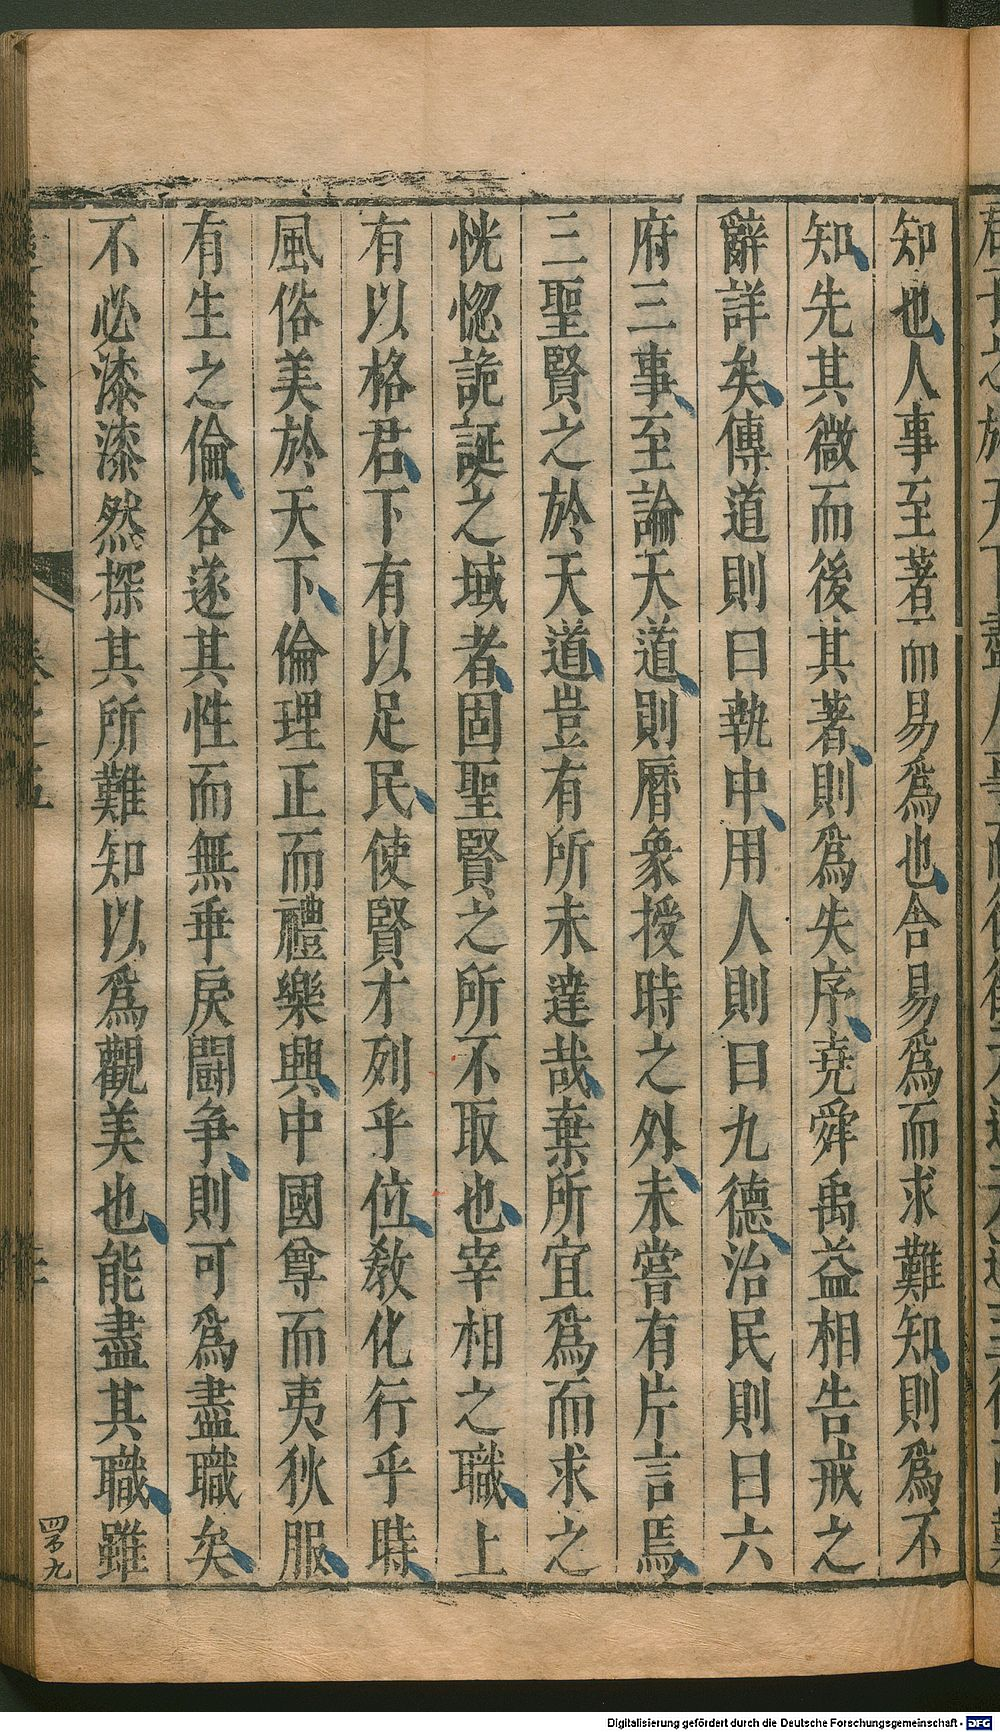 知也人事至著而易爲也舍易爲而求難知則爲不
知先其微而後其著則爲失序堯舜禹益相告戒之
辭詳矣傳道則曰執中用人則曰九德治民則曰六
府三事至論天道則曆象授時之外未嘗有片言焉
三聖賢之於天道豈有所未達哉棄所宜爲而求之
恍惚詭誕之域者固聖賢之所不取也宰相之職上
有以格君下有以足民使賢才列乎位教化行乎時
風俗美於天下倫理正而禮樂興中國尊而夷狄服
有生之倫各遂其性而無乖戾鬪爭則可爲盡職矣
不必漆漆然探其所難知以爲觀美也能盡其職雖
卷之五
四百九
Digitalisierung gefördert durch die Deutsche Forschungsgemeinschaft - DFG